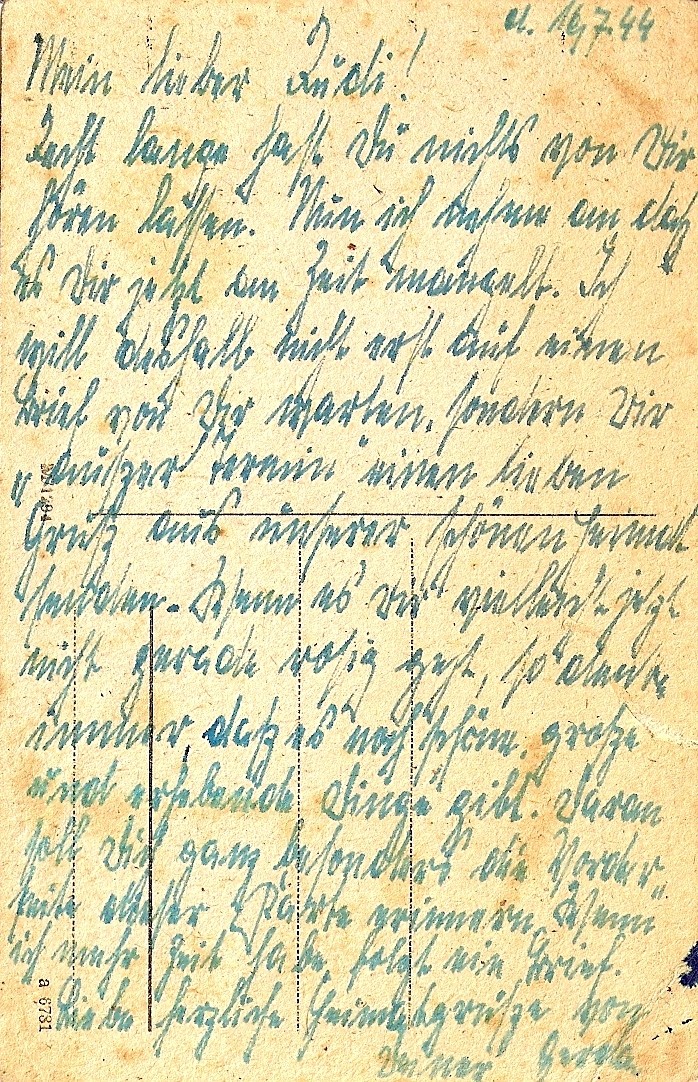 d. 16.7.44
Mein lieber Rudi!
Recht lange hast Du nichts von Dir
hören lassen. Nun ich nehme an, daß
es Dir jetzt an Zeit mangelt. Ich
will deshalb nicht erst auf einen
Brief von Dir warten, sondern Dir
„außer Termin" einen lieben
Gruß aus unserer schönen Heimat
senden. Wenn es Dir vielleicht jetzt
nicht gerade rosig geht, so denke
immer, daß es noch schöne, große
und erhebende Dinge gibt. Daran
soll Dich ganz besonders die Vorder-
seite dieser Karte erinnern. Wenn
ich mehr Zeit habe, folgt ein Brief.
Liebe herzliche Heimatgrüße von
Deiner Gerda
a 6731